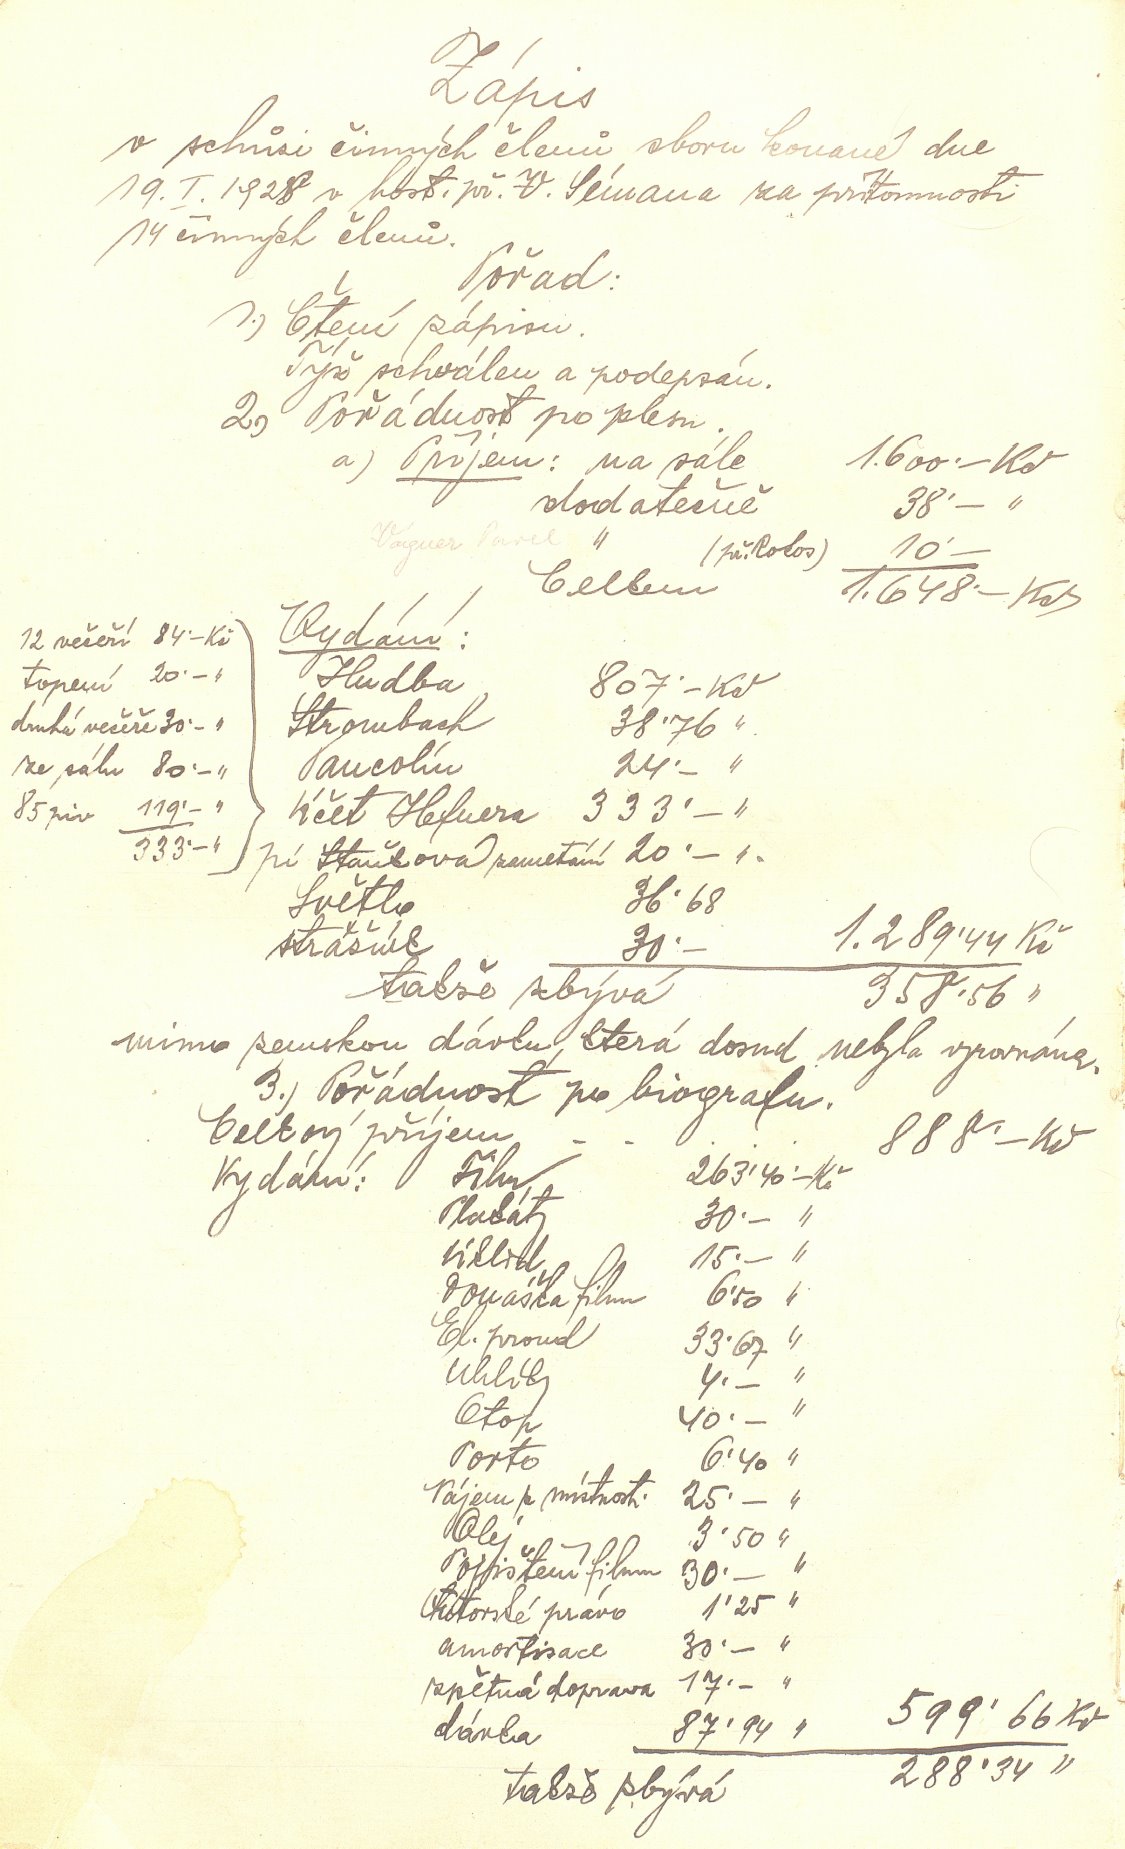 Zápis
v schůsi činných členů sboru konané dne
19. I. 1928 v host. př. V. Sémana za přítomnosti
14 činných členů.
Pořad:
1.) Čtení zápisu.
Týž schválen a podepsán.
2.) Pořádnost po plesu.
a) Příjem: na sále 1.600·– Kč
dodatečně 38·– "
Vágner Pavel " (př. Kolos) 10·–
Celkem 1.648·– Kč
Vydání:
12 večeří 84·– Kč
topení 20·– "
druhá večeře 30·– "
ze sálu 80·– "
85 piv 119·– "
333·– "
Hudba 807·– Kč
Strombach 38·76 "
Pancolín 24·– "
Účet Hefnera 333·– "
pí Staňková zametání 20·– "
Světlo 36·68
strážník 30·– 1.289·44 Kč
takže zbývá 358·56 "
mimo zemskou dávku, která dosud nebyla vyrovnána.
3.) Pořádnost po biografu.
Celkový příjem - - . . . 888·– Kč
Vydání: Film 263·40·– Kč
Plakáty 30·– "
Úklid 15·– "
Donáška filmu 6·50 "
El. proud 33·67 "
Uhlíky 4·– "
Otop 40·– "
Porto 6·40 "
Nájem z místnosti 25·– "
Olej 3·50 "
Pojištění filmu 30·– "
Autorské právo 1·25 "
amortisace 30·– "
zpětná doprava 17·– "
dávka 87·94 " 599·66 Kč
takže zbývá 288·34 "